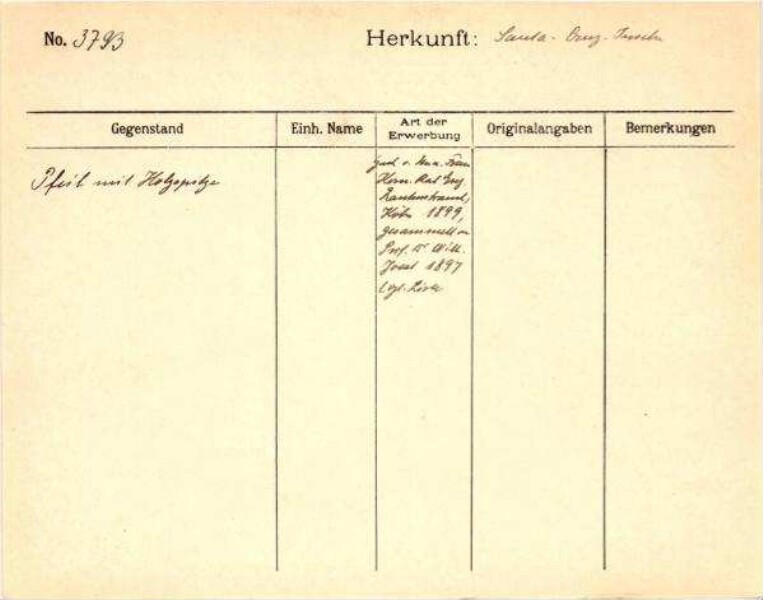 No. 3793
Herkunft: Santa-Cruz-Inseln
Gegenstand
Einh. Name
Art der Erwerbung
Originalangaben
Bemerkungen
Pfeil mit Holzspitze
Frau
Kat Eug.
Rautenstrauch,
Köln 1899,
gesammelt v.
Prof. Dr. Wilh.
Joest 1897